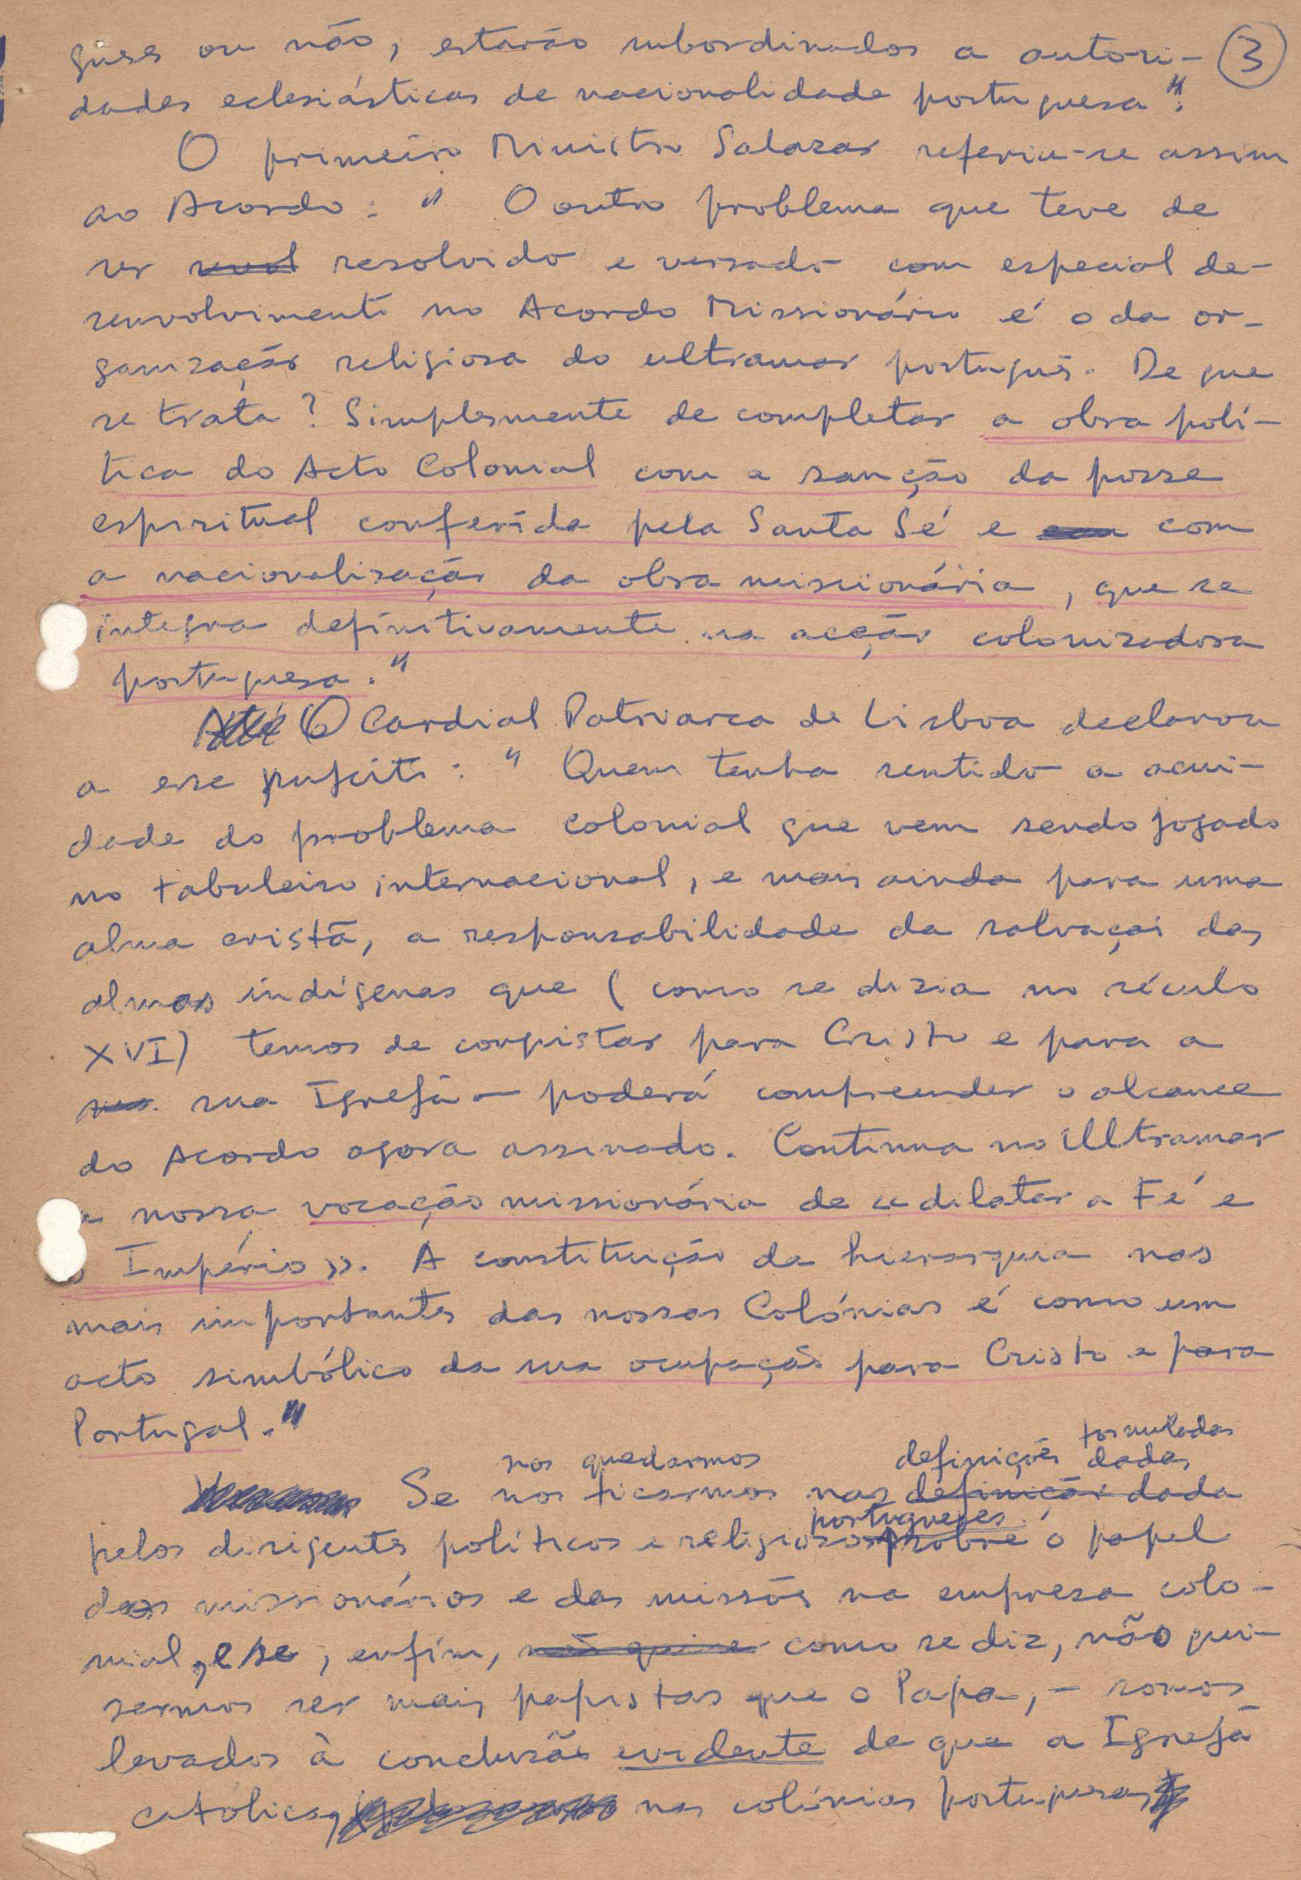 gueses ou não, estarão subordinados a autori- 3
dades eclesiásticas de nacionalidade portuguesa".
O primeiro Ministro Salazar referiu-se assim
ao Acordo: " O outro problema que teve de
ser resolvido e versado com especial de-
senvolvimento no Acordo Missionário é o da or-
ganização religiosa do ultramar português. De que
se trata? Simplesmente de completar a obra polí-
tica do Acto Colonial com a sanção da posse
espiritual conferida pela Santa Sé e com
a nacionalização da obra missionária, que se
integra definitivamente na acção colonizadora
portuguesa."
O Cardial Patriarca de Lisboa declarou
a esse respeito: " Quem tenha sentido a acui-
dade do problema colonial que vem sendo jogado
no tabuleiro internacional, e mais ainda para uma
alma cristã, a responsabilidade da salvação das
almas indígenas que (como se dizia no século
XVI) temos de conquistar para Cristo e para a
sua Igreja – poderá compreender o alcance
do Acordo agora assinado. Continua no Ultramar
a nossa vocação missionária de «dilatar a Fé e
o Império». A constituição da hierarquia nas
mais importantes das nossas Colónias é como um
acto simbólico da sua ocupação para Cristo e para
Portugal."
formuladas
nos quedarmos definições dadas
Se nos ficarmos nas definição dada
portugueses
pelos dirigentes políticos e religiosos sobre o papel
dos missionários e das missões na empresa colo-
nial, e se, enfim, como se diz, não qui-
sermos ser mais papistas que o Papa, – somos
levados à conclusão evidente de que a Igreja
católica, nas colónias portuguesas